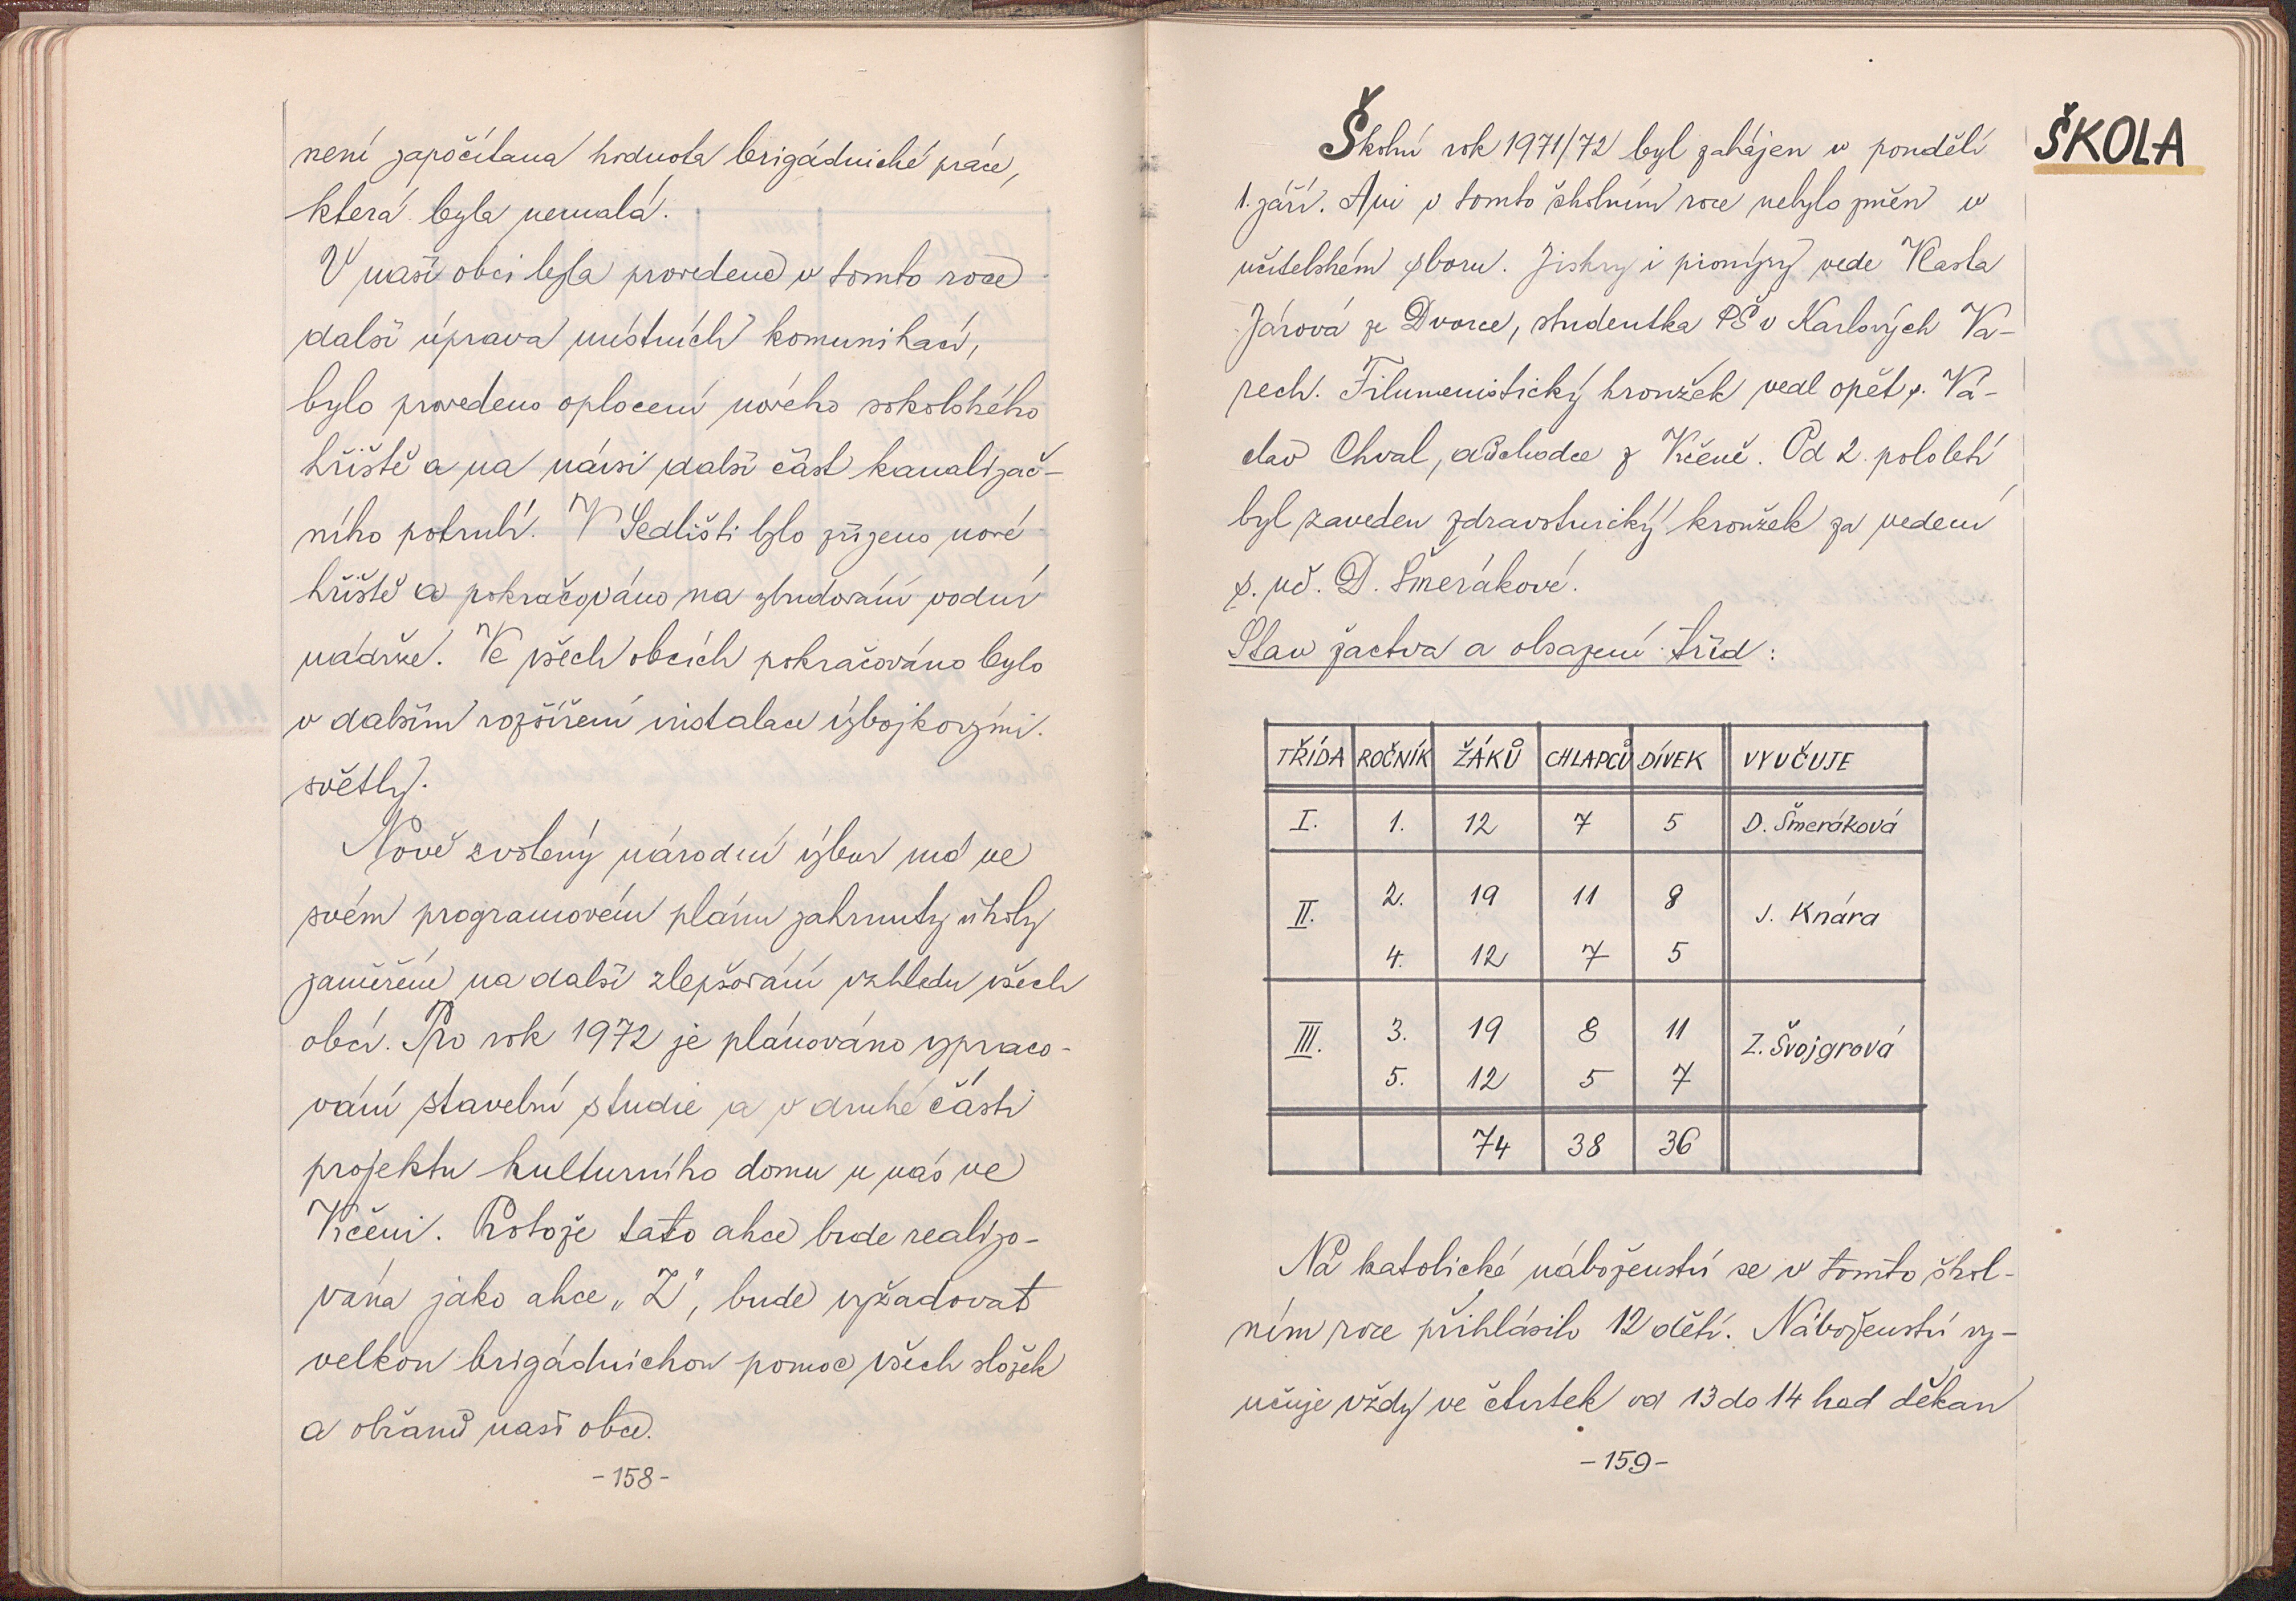 není započítana hodnota brigádnické práce,
která byla nemalá.
V naší obci byla provedena v tomto roce
další úprava místních komunikací,
bylo provedeno oplocení nového sokolského
hřiště a na návsi další část kanalizač-
ního potrubí. V Sedlišti bylo zřízeno nové
hřiště a pokračováno na zbudování vodní
nádrže. Ve všech obcích pokračováno bylo
v dalším rozšíření instalace výbojkovými
světly.
Nově zvolený národní výbor má ve
svém programovém plánu zahrnuty úkoly
zaměřené na další zlepšování vzhledu všech
obcí. Pro rok 1972 je plánováno vypraco-
vání stavební studie a v druhé části
projektu kulturního domu u nás ve
Kčeni. Protože tato akce bude realizo-
vána jako akce „Z", bude vyžadovat
velkou brigádnickou pomoc všech složek
a občanů naší obce.
-158-
ŠKOLA
Školní rok 1971/72 byl zahájen v pondělí
1. září. Ani v tomto školním roce nebylo změn v
učitelském sboru. Jiskry i pionýry vede Vlasta
Járová ze Dvorce, studentka PŠ v Karlových Va-
rech. Filumenistický kroužek vedl opět p. Vá-
clav Chval, důchodce z Kčeně. Od 2. pololetí
byl zaveden zdravotnický kroužek za vedení
s. uč. D. Šmerákové.
Stav žactva a obsazení tříd:
TŘÍDA ROČNÍK ŽÁKŮ CHLAPCŮ DÍVEK VYUČUJE
I. 1. 12 7 5 D. Šmeráková
II. 2. 19 11 8 J. Knára
4. 12 7 5
III. 3. 19 8 11 Z. Švojgrová
5. 12 5 7
74 38 36
Na katolické náboženství se v tomto škol-
ním roce přihlásilo 12 dětí. Náboženství vy-
učuje vždy ve čtvrtek od 13 do 14 hod děkan
-159-